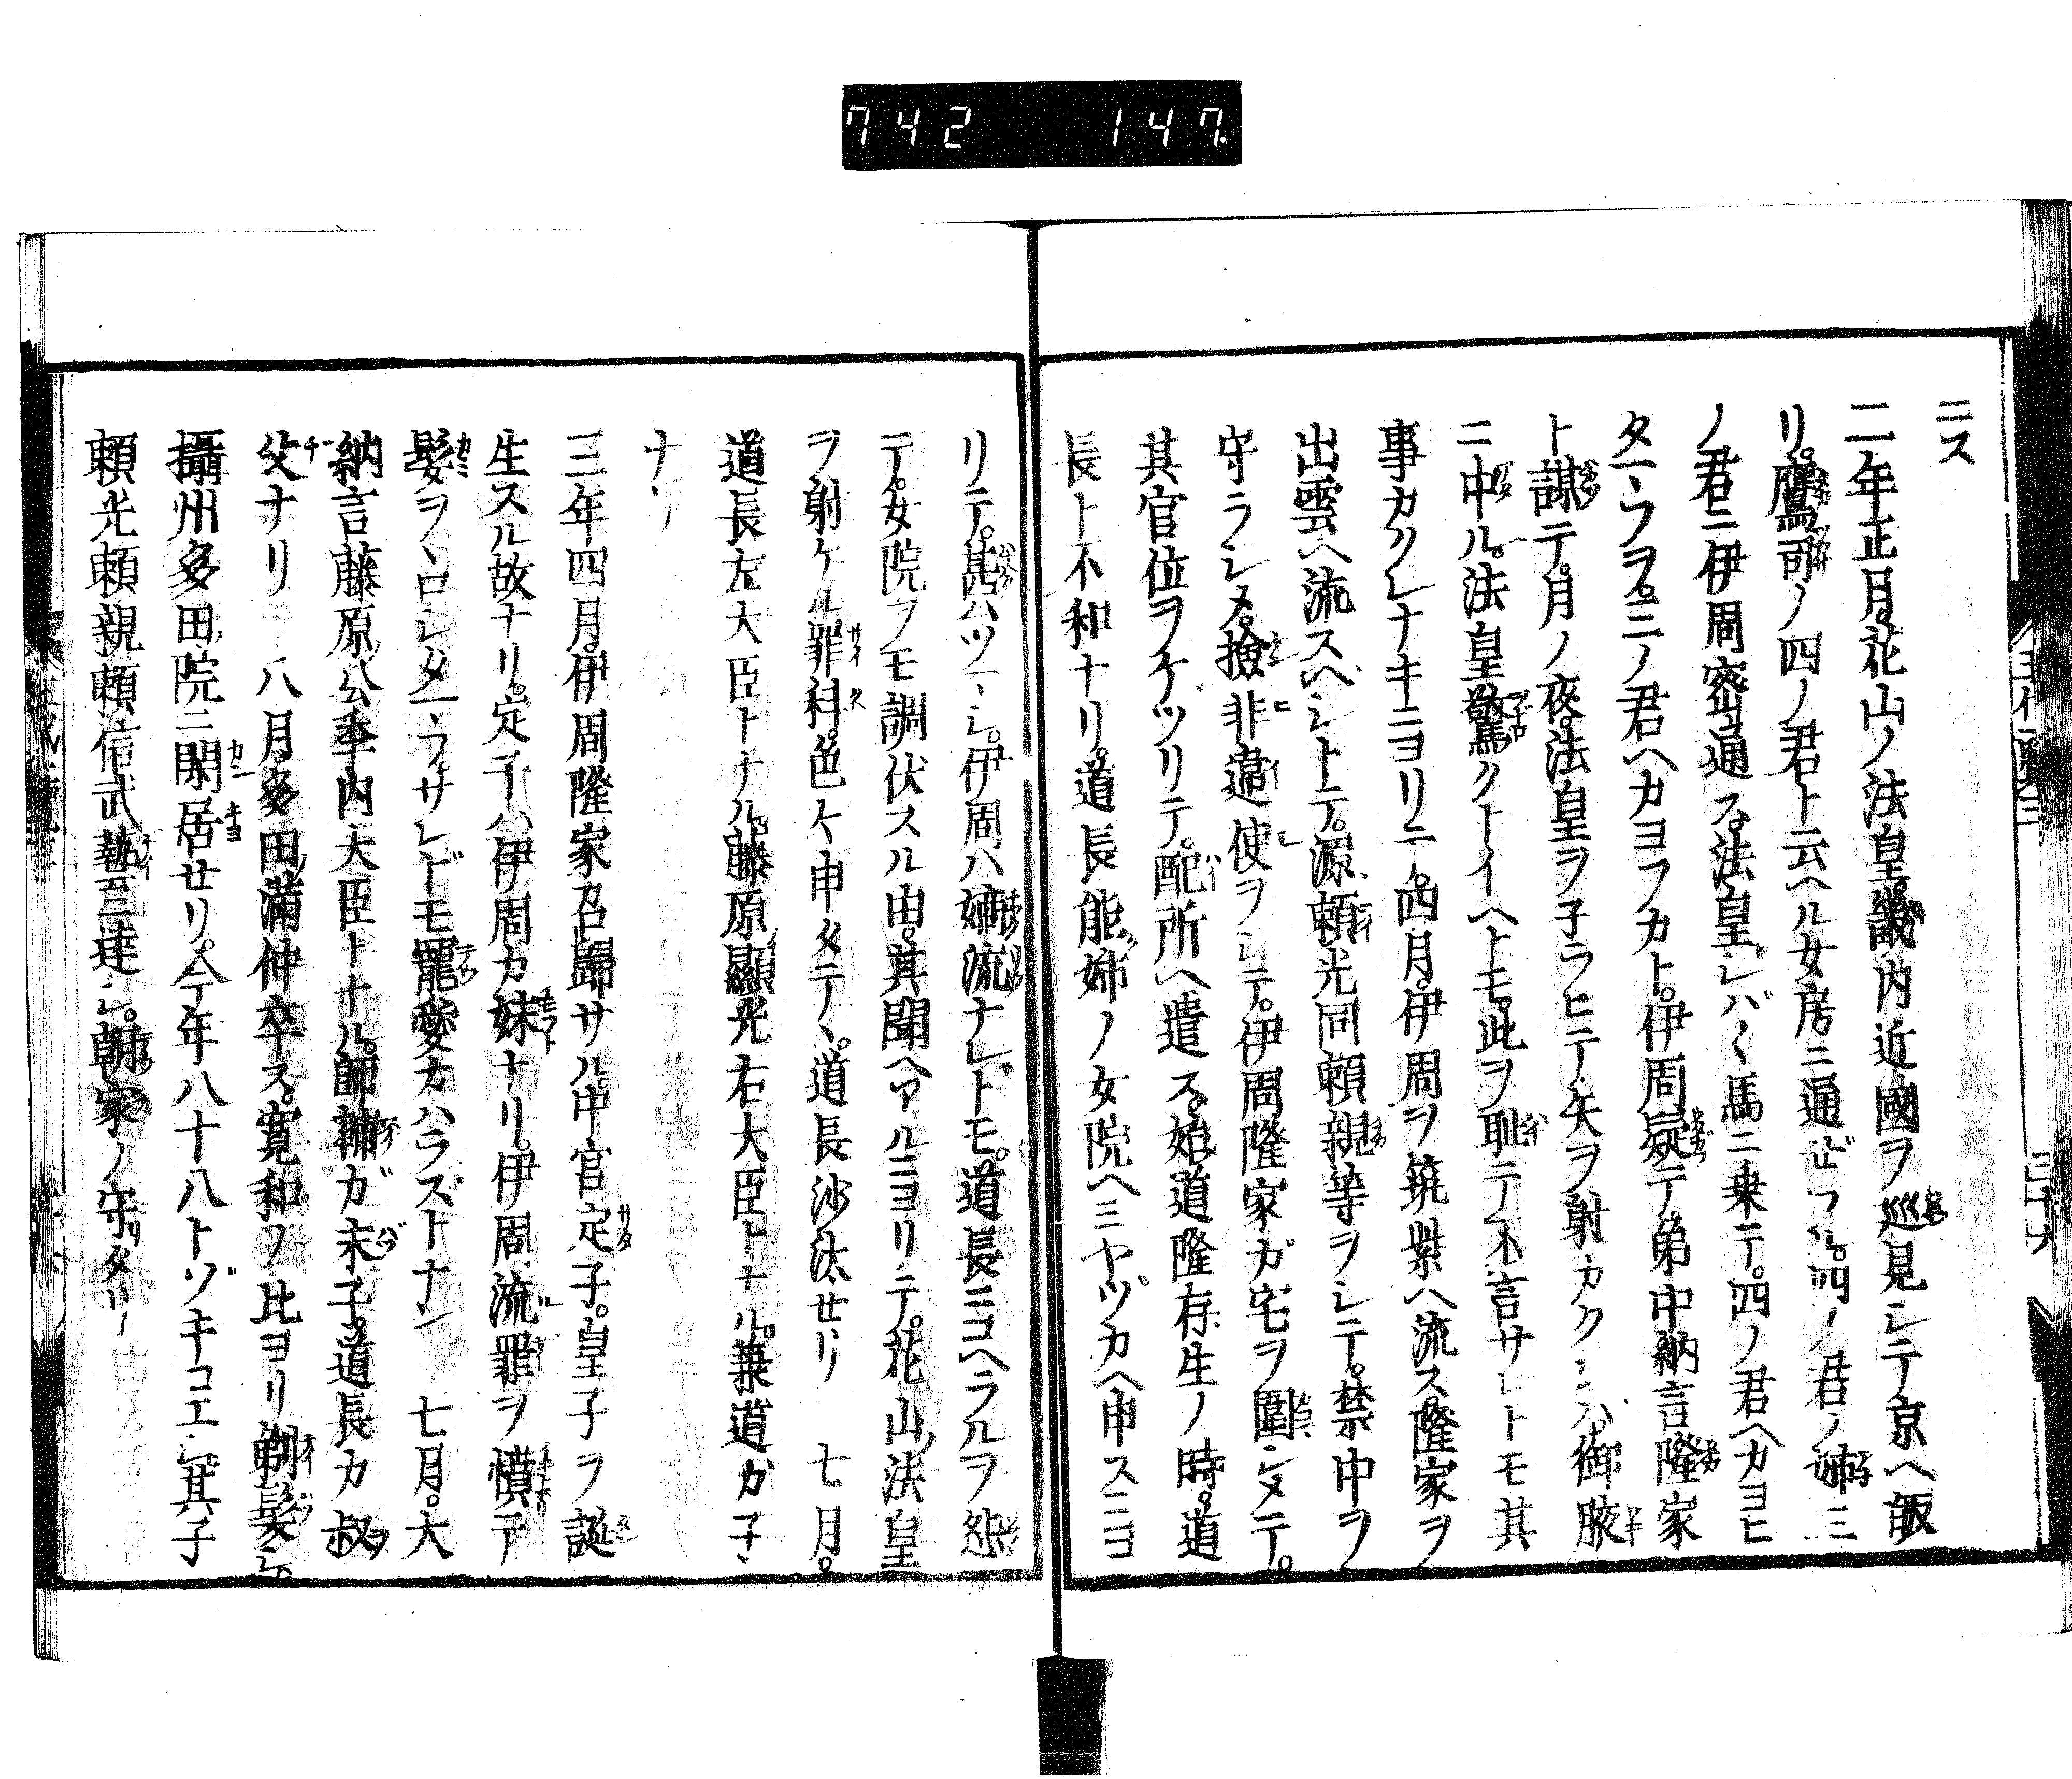 742 147
ニス
二年正月。花山ノ法皇。畿内近國ヲ巡見シテ京ヘ皈
リ。鷹司ノ四ノ君ト云ヘル女房ニ通ヒ玉フ。四ノ君ノ姉三
ノ君ニ伊周密通ス。法皇シバ〱馬ニ乗テ。四ノ君ヘカヨヒ
タマフヲ。三ノ君ヘカヨフカト。伊周疑テ弟中納言隆家
ト謀テ。月ノ夜。法皇ヲ子ラヒテ矢ヲ射カク。御腋
ニ中ル。法皇驚クトイヘトモ。此ヲ耻テ不言サレトモ其
事カクレナキニヨリテ。四月。伊周ヲ筑紫ヘ流ス。隆家ヲ
出雲ヘ流スベシトテ。源頼光同頼親等ヲシテ。禁中ヲ
守ラシメ。撿非違使ヲシテ。伊周隆家ガ宅ヲ圍シメテ。
其官位ヲケヅリテ。配所ヘ遣ス。始道隆存生ノ時。道
長ト不和ナリ。道長能姉ノ女院ヘミヤヅカヘ申スニヨ
リテ。甚ムツマシ。伊周ハ嫡流ナレドモ。道長ニコヘラルヲ怨
テ。女院ヲモ調伏スル由。其聞ヘアルニヨリテ。花山ノ法皇
ヲ射ケル罪科。色ケ申タテヽ。道長沙汰せリ 七月。
道長左大臣トナル。藤原顯光右大臣トナル。兼道ガ子
ナリ
三年四月。伊周隆家召歸サル。中宮定子。皇子ヲ誕
生スル故ナリ。定子ハ伊周カ妹ナリ。伊周流罪ヲ憤テ
髮ヲヽロシタマフ。サレドモ寵愛カハラズトナン 七月。大
納言藤原公季内大臣トナル。師輔ガ末子。道長カ叔
父ナリ 八月多田滿仲卒ス。寛和ノ比ヨリ剃髮シ
攝州多田院ニ閑居せリ。今年八十八トゾキコエシ。其子
頼光頼親頼信武藝ニ達シ。朝家ノ守リタリ